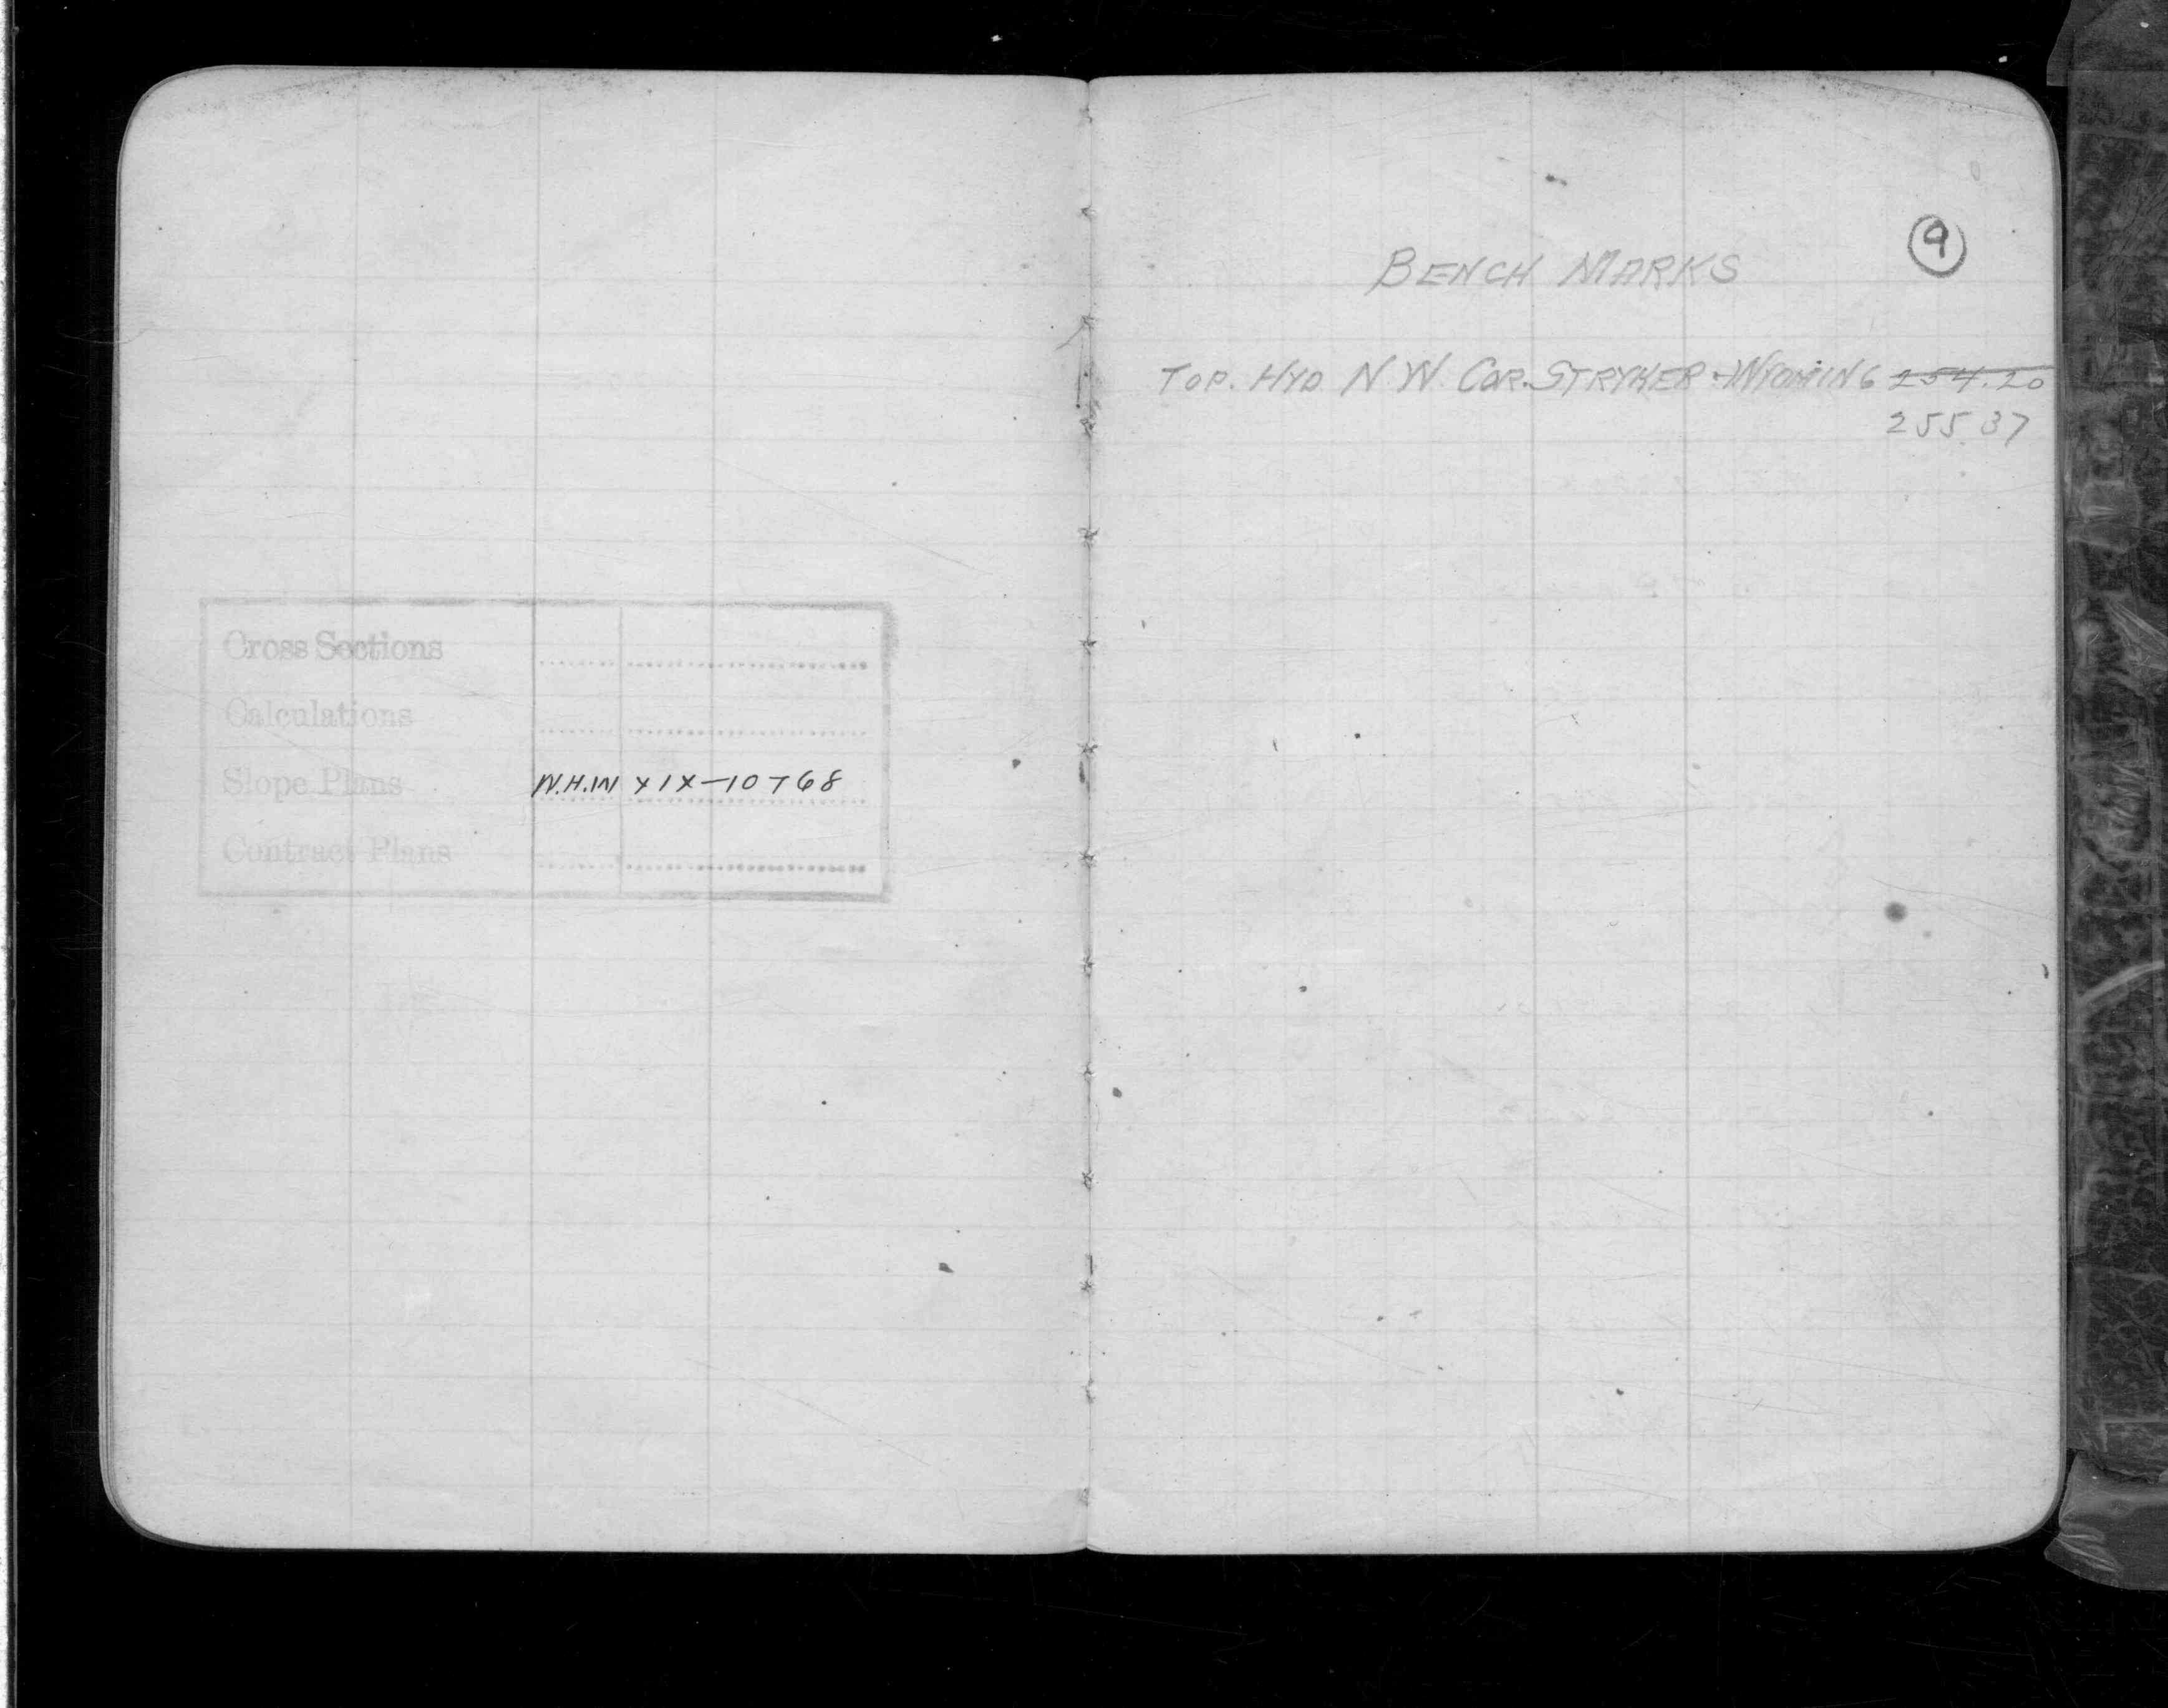 Cross Sections
Calculations
Slope Plans W.H.W XIX-10768
Contract Plans
9
BENCH MARKS
TOP. HYD. N W. COR. STRYKER & WYOMING 254.20
255.37